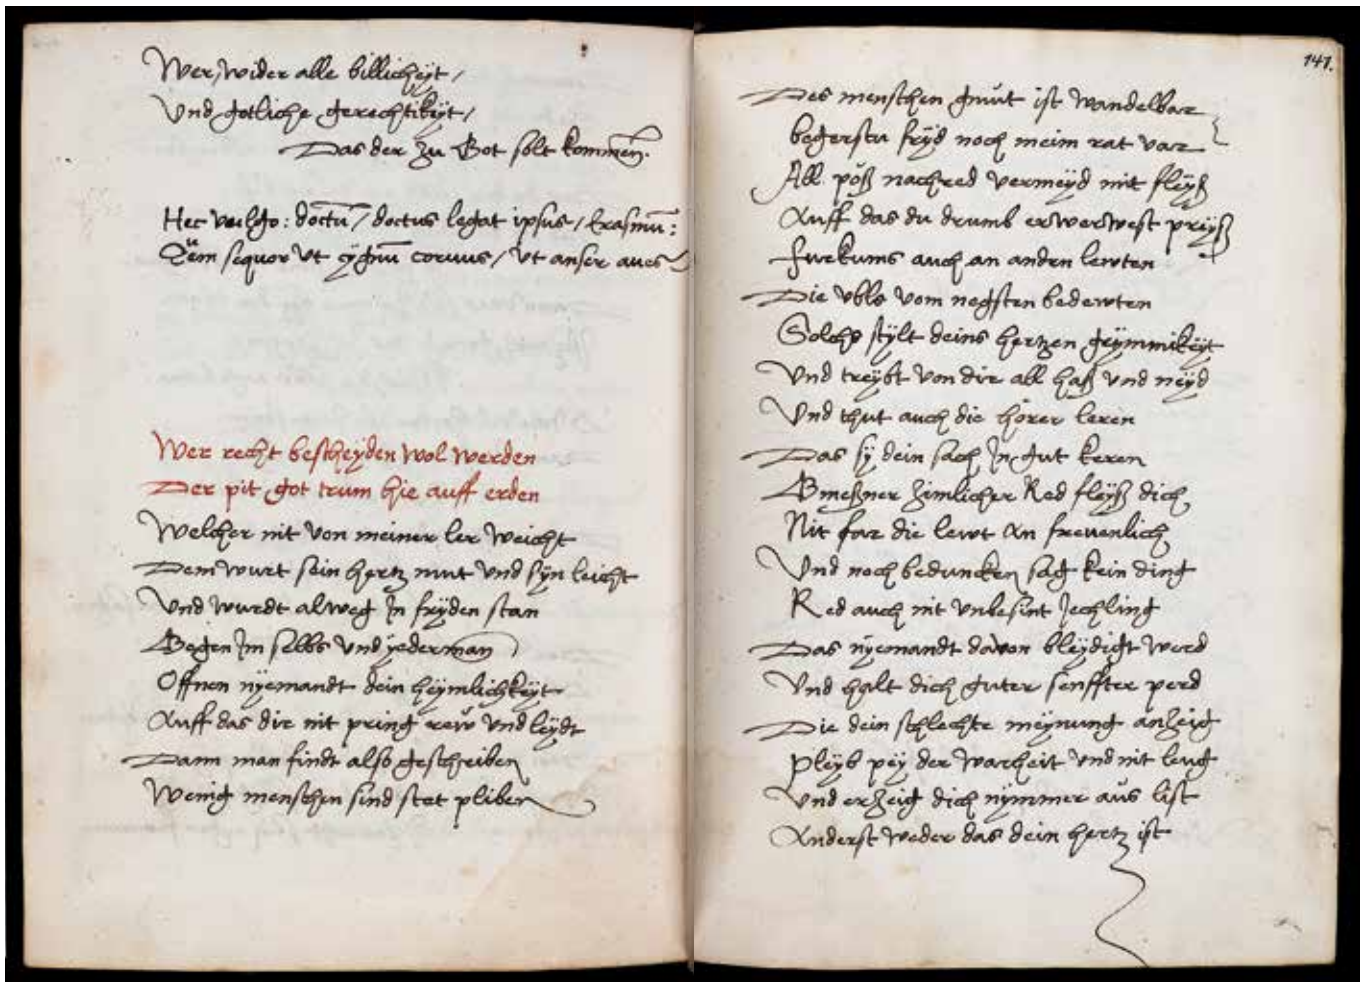 Wer, wider alle billicheyt /
Und gotliche gerechtikeyt /
Das der zu Got solt kommen.
Hec vulgo: doctū / doctus legat ipsus / Erasmū:
Quem sequor ut cygnū corvus / ut anser aves
Wer recht bescheyden wol werden
Der pit got trum hie auff erden
Welcher nit von meiner ler weicht
Dem wurt sein hertz mut und syn leicht
Und wurdt alweg jn fryden stan
Gegen jm selbs und yederman
Offnen nyemandt dein heymlichkeyt
Auff das dir nit pring rew und leydt
Dann man findt also geschriben
Wenig menschen sind stet pliben
141.
Des menschen gmut ist wandelbar
begerstu fryd noch meim rat var
All pöß nachred vermeyd mit fleyß
Auff das du drumb erwerwest preyß
Furkums auch an andrn lewten
Die ubls vom negsten bedewten
Solchs stylt deins hertzen grymmikeyt
Und treybt von dir all haß und neyd
Und thut auch die hörer leren
Das sy dein sach jn gut keren
Gmeßner zimlicher Red fleyß dich
Nit far die lewt an frevenlich
Und noch beduncken sag kein ding
Red auch nit unbesint jechling
Das nyemandt davon bleydigt werd
Und halt dich guter senffter perd
Die dein schlechte meynung anzeig
Pleyb pey der warheit und nit leug
Und erzeig dich nymmer aus list
Anderst weder das dein hertz ist